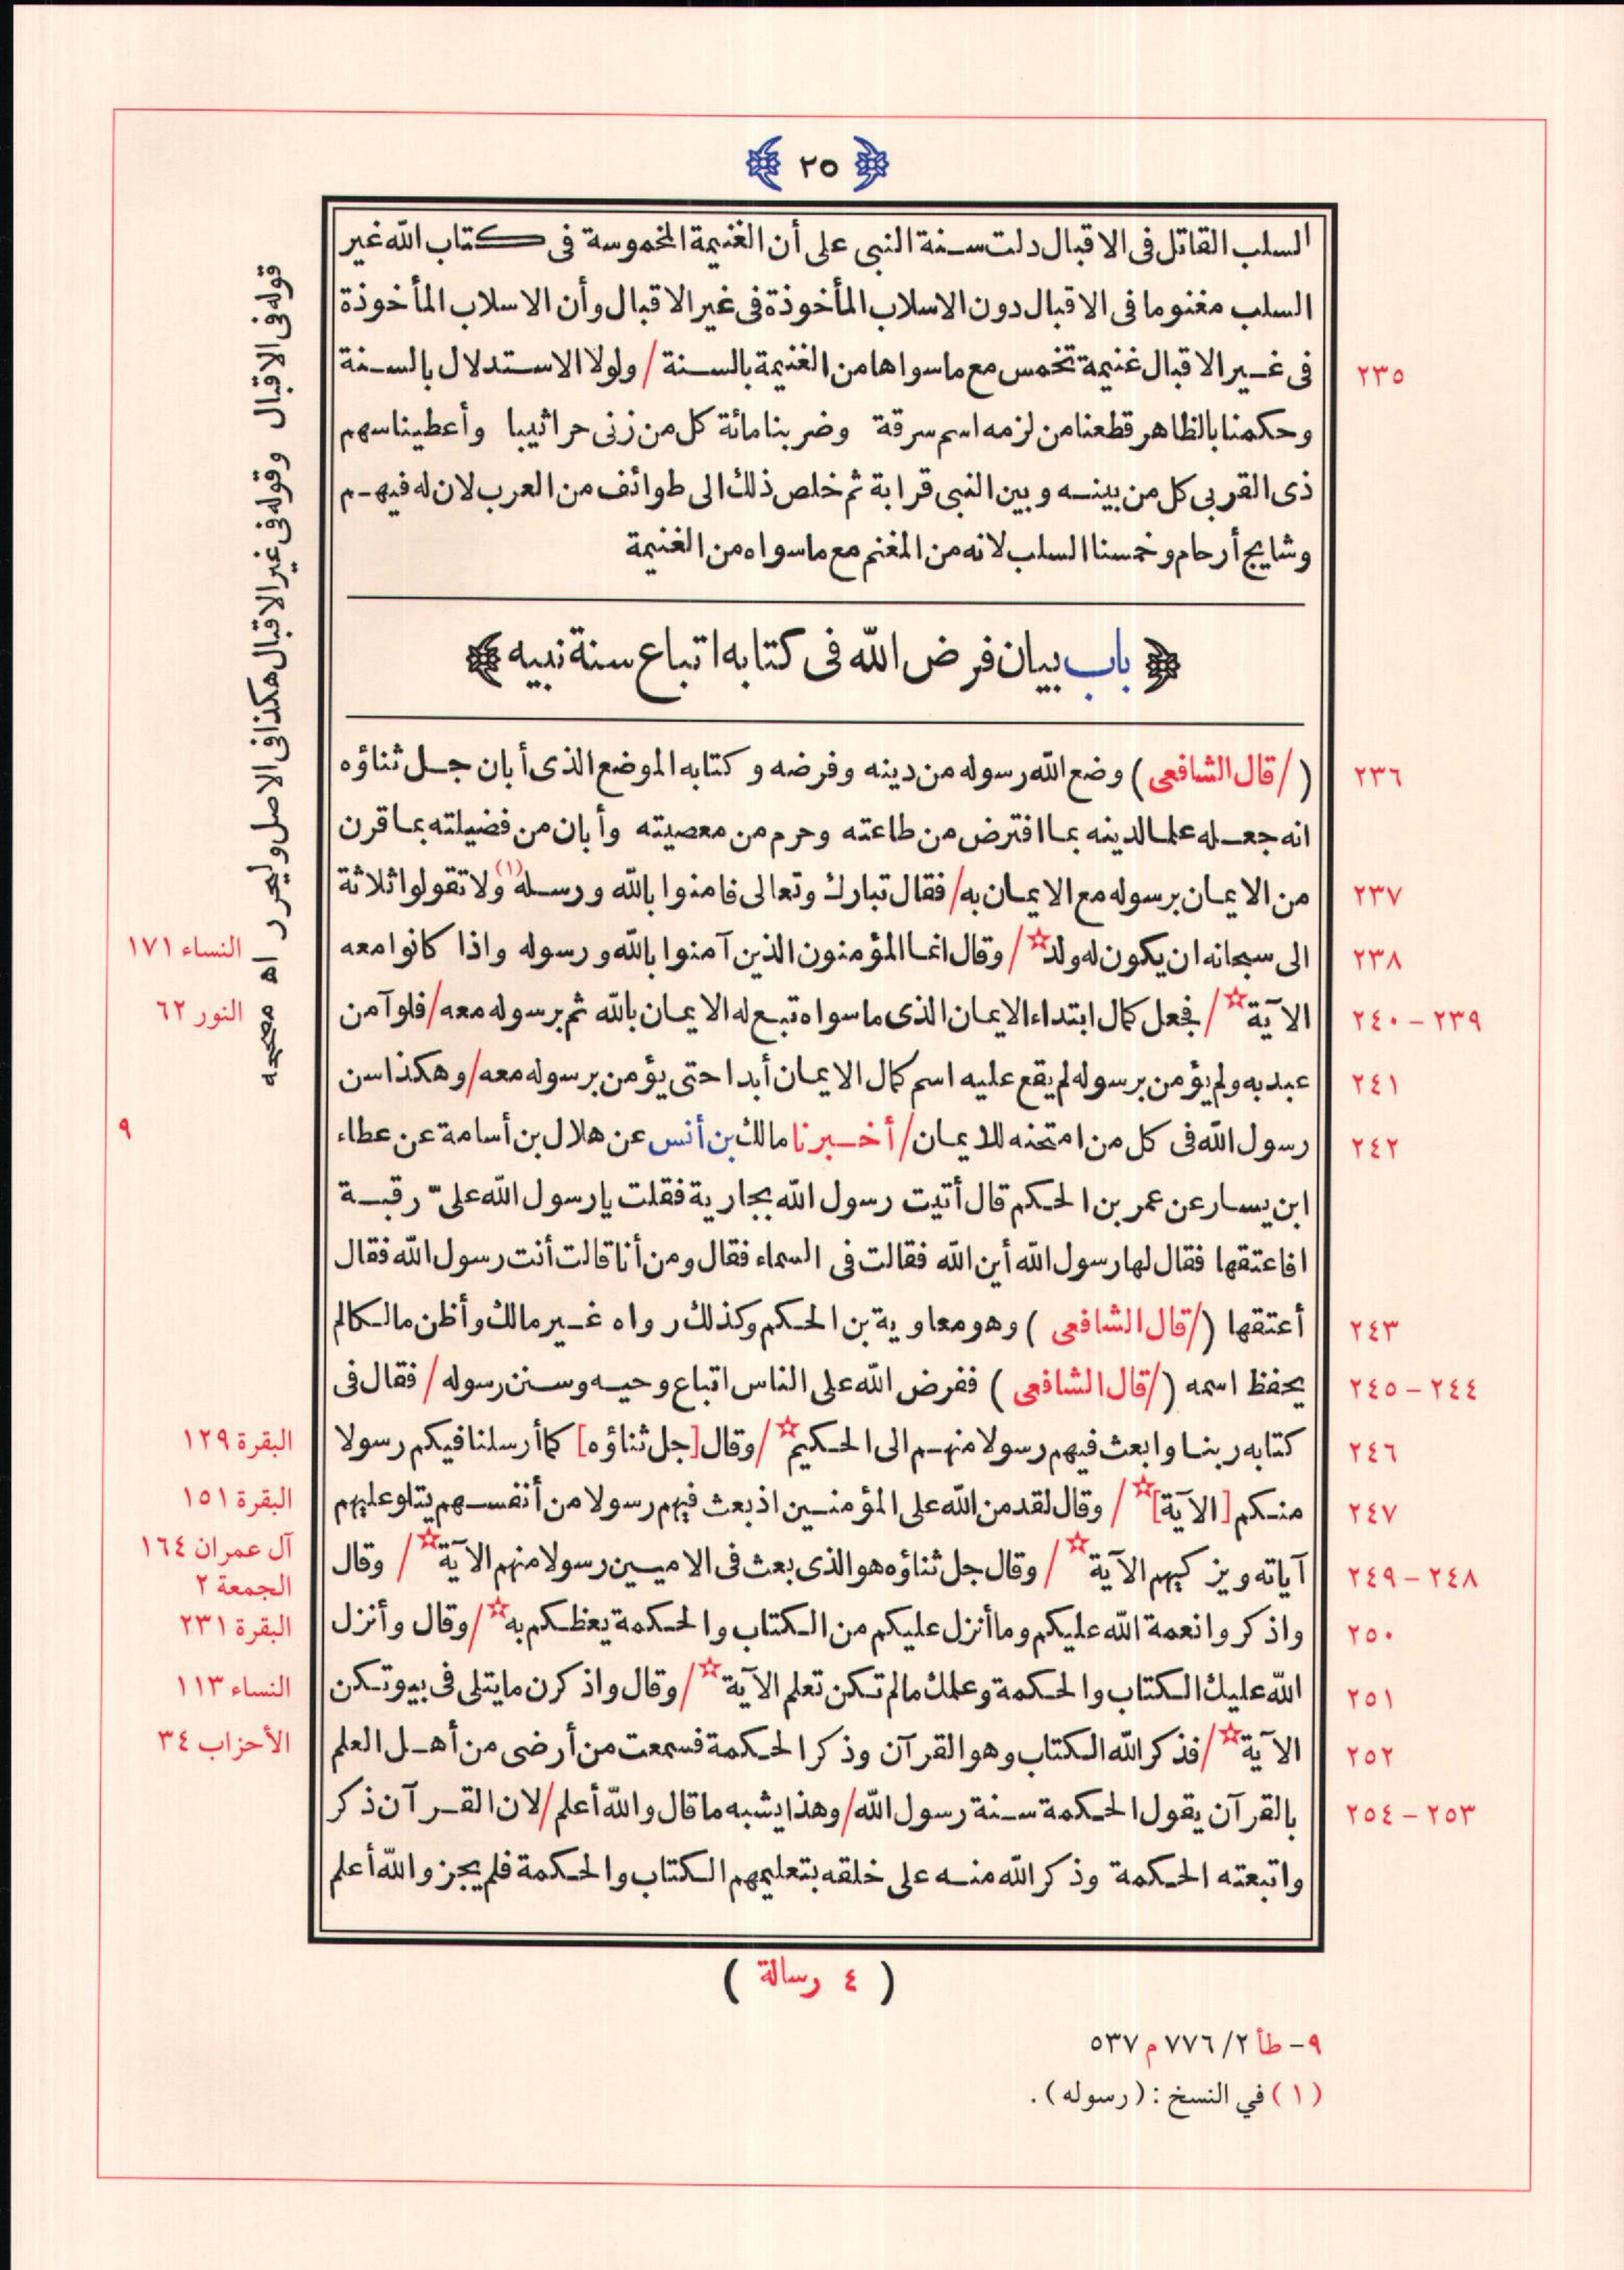 ﴿ ٢٥ ﴾
السلب القاتل فى الاقبال دلت سنة النبى على أن الغنيمة المخموسة فى كتاب الله غير
السلب مغنوما فى الاقبال دون الاسلاب المأخوذة فى غير الاقبال وأن الاسلاب المأخوذة
٢٣٥ فى غير الاقبال غنيمة تخمس مع ماسواها من الغنيمة بالسنة / ولولا الاستدلال بالسنة
وحكمنا بالظاهر قطعنا من لزمه اسم سرقة وضربنا مائة كل من زنى حرا ثيبا وأعطينا سهم
ذى القربى كل من بينه وبين النبى قرابة ثم خلص ذلك الى طوائف من العرب لان له فيهم
وشايج أرحام وخمسنا السلب لانه من المغنم مع ماسواه من الغنيمة
﴿ باب بيان فرض الله فى كتابه اتباع سنة نبيه ﴾
٢٣٦ (/ قال الشافعى ) وضع الله رسوله من دينه وفرضه وكتابه الموضع الذى أبان جل ثناؤه
انه جعله علما لدينه بما افترض من طاعته وحرم من معصيته وأبان من فضيلته بما قرن
٢٣٧ من الايمان برسوله مع الايمان به / فقال تبارك وتعالى فامنوا بالله ورسله (١) ولا تقولوا ثلاثة
٢٣٨ الى سبحانه ان يكون له ولد☆ / وقال انما المؤمنون الذين آمنوا بالله ورسوله واذا كانوا معه النساء ١٧١
٢٣٩ – ٢٤٠ الآية☆ / فجعل كمال ابتداء الايمان الذى ماسواه تبع له الايمان بالله ثم برسوله معه / فلو آمن النور ٦٢
٢٤١ عبد به ولم يؤمن برسوله لم يقع عليه اسم كمال الايمان أبدا حتى يؤمن برسوله معه / وهكذا سن
٢٤٢ رسول الله فى كل من امتحنه للايمان / أخبرنا مالك بن أنس عن هلال بن أسامة عن عطاء ٩
ابن يسار عن عمر بن الحكم قال أتيت رسول الله بجارية فقلت يا رسول الله علىّ رقبة
افاعتقها فقال لها رسول الله أين الله فقالت فى السماء فقال ومن أنا قالت أنت رسول الله فقال
٢٤٣ أعتقها (/ قال الشافعى ) وهو معاوية بن الحكم وكذلك رواه غير مالك وأظن مالكا لم
٢٤٤ – ٢٤٥ يحفظ اسمه (/ قال الشافعى ) ففرض الله على الناس اتباع وحيه وسنن رسوله / فقال فى
٢٤٦ كتابه ربنا وابعث فيهم رسولا منهم الى الحكيم☆ / وقال [جل ثناؤه] كما أرسلنا فيكم رسولا البقرة ١٢٩
٢٤٧ منكم [الآية]☆ / وقال لقد من الله على المؤمنين اذ بعث فيهم رسولا من أنفسهم يتلو عليهم البقرة ١٥١
٢٤٨ – ٢٤٩ آياته ويزكيهم الآية☆ / وقال جل ثناؤه هو الذى بعث فى الاميين رسولا منهم الآية☆ / وقال آل عمران ١٦٤ الجمعة ٢
٢٥٠ واذكروا نعمة الله عليكم وما أنزل عليكم من الكتاب والحكمة يعظكم به☆ / وقال وأنزل البقرة ٢٣١
٢٥١ الله عليك الكتاب والحكمة وعلمك مالم تكن تعلم الآية☆ / وقال واذكرن ما يتلى فى بيوتكن النساء ١١٣
٢٥٢ الآية☆ / فذكر الله الكتاب وهو القرآن وذكر الحكمة فسمعت من أرضى من أهل العلم الأحزاب ٣٤
٢٥٣ – ٢٥٤ بالقرآن يقول الحكمة سنة رسول الله / وهذا يشبه ما قال والله أعلم / لان القرآن ذكر
واتبعته الحكمة وذكر الله منه على خلقه بتعليمهم الكتاب والحكمة فلم يجز والله أعلم
قوله فى الاقبال وقوله فى غير الاقبال هكذا فى الاصل وليحرر اه مصححه
( ٤ رسالة )
٩ – طأ ٢/ ٧٧٦ م ٥٣٧
(١) في النسخ : (رسوله).